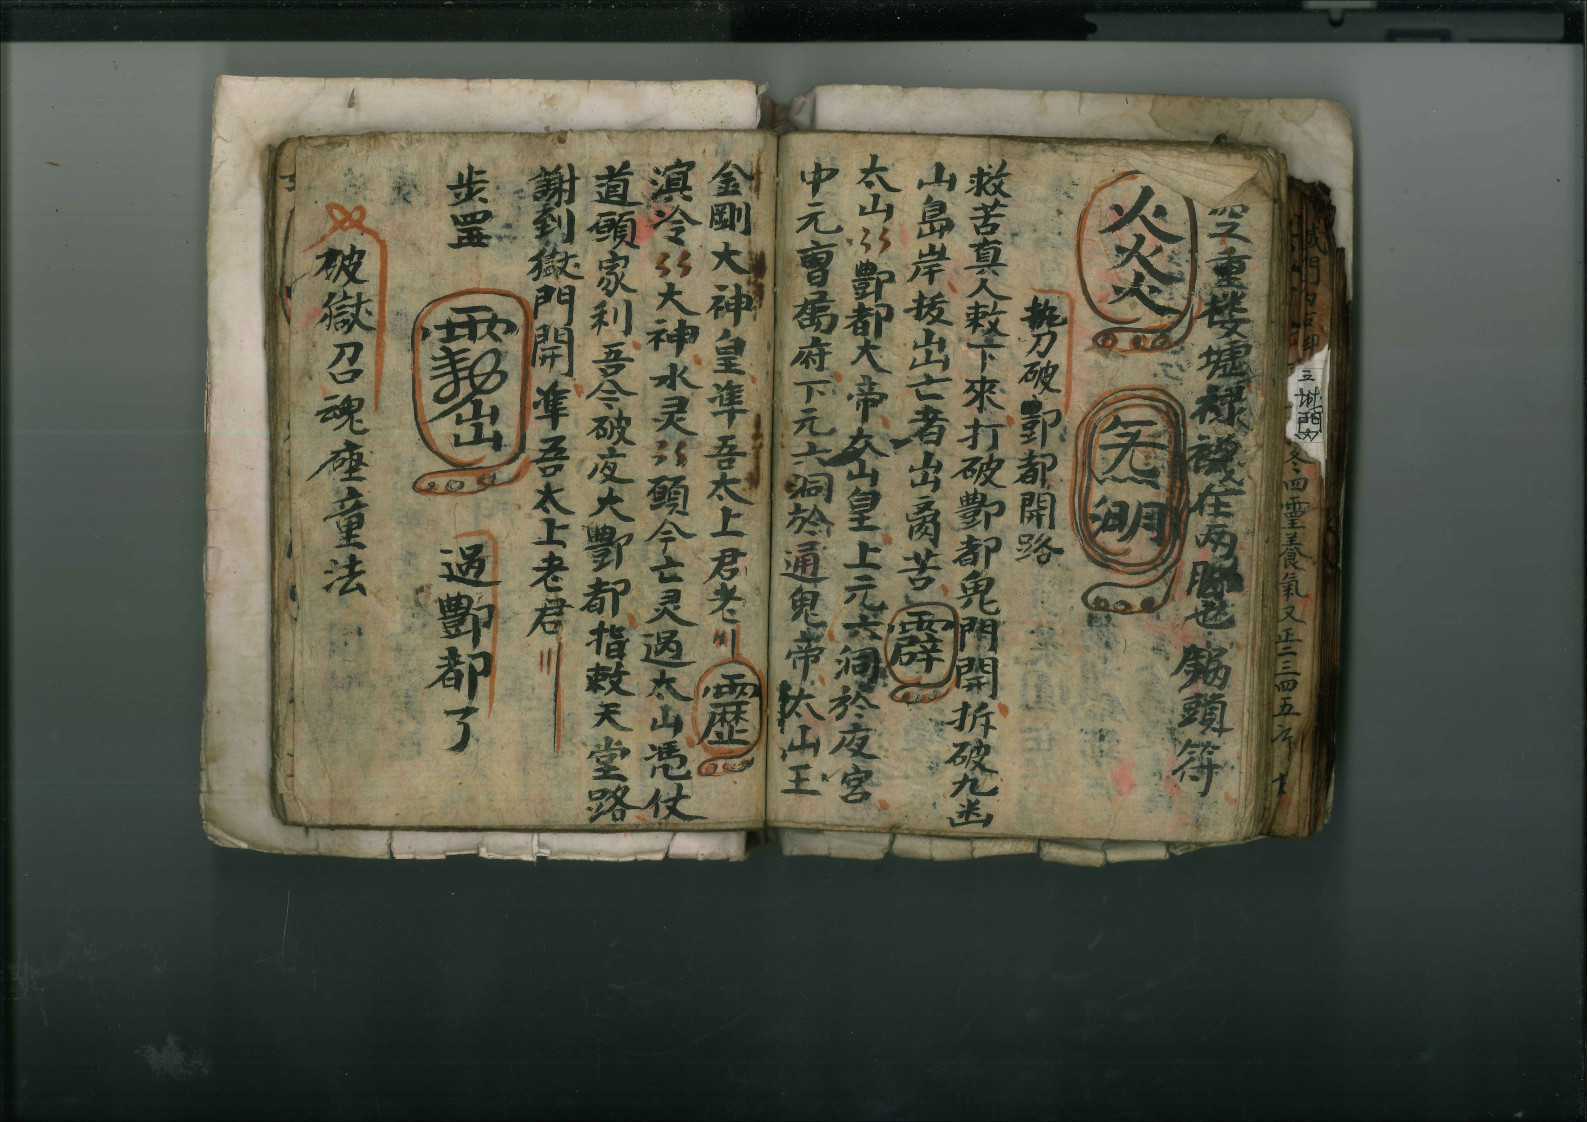 重楼墟禄禄在两脚也 鍋頭符
火火火
炁明
執刀破酆都開路
救苦真人敕下來打破酆都鬼門開拆破九幽
山島岸拔出亡者出離苦
霹
太山〻酆都大帝太山皇上元六洞於夜宮
中元曹属府下元六洞於通鬼帝太山王
金剛大神皇準吾太上君老〢
靂
滇冷〻大神水灵〻頭今亡灵過太山憑仗
道頭家利吾今破夜大酆都指敕天堂路
謝到獄門開準吾太上老君〢
步罡
出
過酆都了
破獄召魂座童法
冬四靈養氣又正二三四五